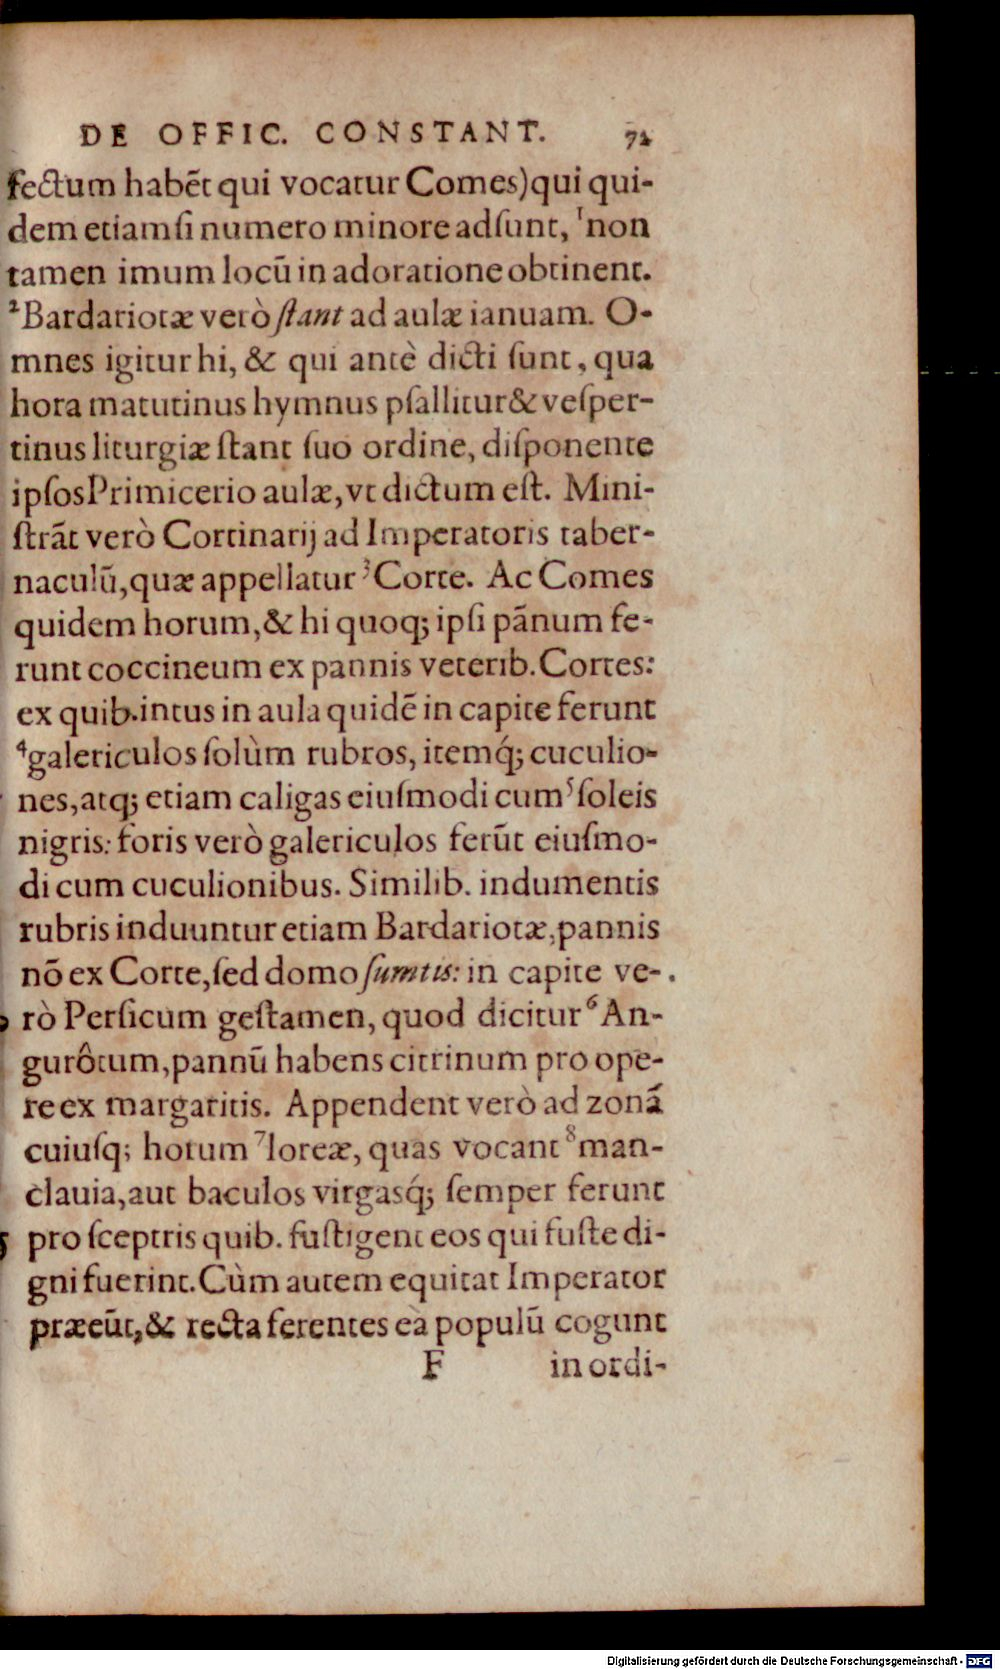 DE OFFIC. CONSTANT. 71
fectum habēt qui vocatur Comes) qui qui-
dem etiamsi numero minore adsunt, ¹non
tamen imum locū in adoratione obtinent.
²Bardariotæ verò stant ad aulæ ianuam. O-
mnes igitur hi, & qui antè dicti sunt, qua
hora matutinus hymnus psallitur & vesper-
tinus liturgiæ stant suo ordine, disponente
ipsos Primicerio aulæ, vt dictum est. Mini-
strāt verò Cortinarij ad Imperatoris taber-
naculū, quæ appellatur ³Corte. Ac Comes
quidem horum, & hi quoq; ipsi pānum fe-
runt coccineum ex pannis veterib. Cortes:
ex quib. intus in aula quidē in capite ferunt
⁴galericulos solùm rubros, itemq́; cuculio-
nes, atq; etiam caligas eiusmodi cum ⁵soleis
nigris: foris verò galericulos ferūt eiusmo-
di cum cuculionibus. Similib. indumentis
rubris induuntur etiam Bardariotæ, pannis
nō ex Corte, sed domo sumtis: in capite ve-
rò Persicum gestamen, quod dicitur ⁶An-
gurôtum, pannū habens citrinum pro ope-
re ex margaritis. Appendent verò ad zonā
cuiusq; horum ⁷loreæ, quas vocant ⁸man-
clauia, aut baculos virgasq́; semper ferunt
pro sceptris quib. fustigent eos qui fuste di-
gni fuerint. Cùm autem equitat Imperator
præeūt, & recta ferentes ea populū cogunt
F in ordi-
Digitalisierung gefördert durch die Deutsche Forschungsgemeinschaft - DFG